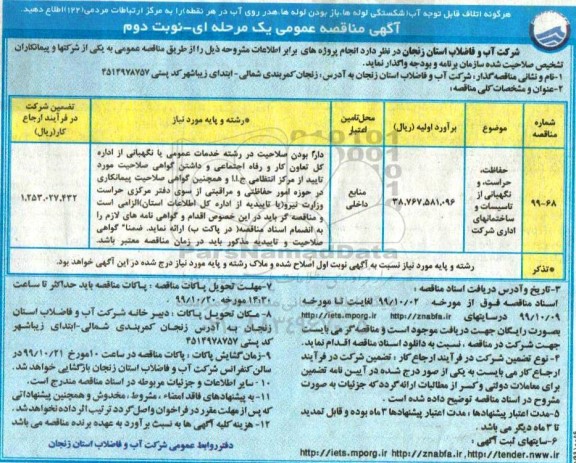 هرگونه اتلاف قابل توجه آب(شکستگی لوله ها،باز بودن لوله ها،هدر روی آب در هر نقطه)را به مرکز ارتباطات مردمی(۱۲۲)اطلاع دهید
آگهی مناقصه عمومی یک مرحله ای-نوبت دوم
شرکت آب و فاضلاب استان زنجان در نظر دارد انجام پروژه های برابر اطلاعات مشروحه ذیل را از طریق مناقصه عمومی به یکی از شرکتها و پیمانکاران
تشخیص صلاحیت شده سازمان برنامه و بودجه واگذار نماید.
۱-نام و نشانی مناقصه گذار : شرکت آب و فاضلاب استان زنجان به آدرس: زنجان کمربندی شمالی- ابتدای زیباشهر کد پستی ۴۵۱۳۹۷۸۷۵۷
۲-عنوان و مشخصات کلی مناقصه:
شماره مناقصه
موضوع
برآورد اولیه (ریال)
محل تامین اعتبار
*رشته و پایه مورد نیاز
تضمین شرکت در فرآیند ارجاع کار(ریال)
۹۹-۶۸
حفاظت، حراست، و نگهبانی از تاسیسات و ساختمانهای اداری شرکت
۳۸,۷۶۷,۵۸۱,۰۹۶
منابع داخلی
دارا بودن صلاحیت در رشته خدمات عمومی یا نگهبانی از اداره
کل تعاون کار و رفاه اجتماعی و داشتن گواهی صلاحیت مورد
تایید از مرکز انتظامی ج.ا.ا و همچنین گواهی صلاحیت پیمانکاری
در حوزه امور حفاظتی و مراقبتی از سوی دفتر مرکزی حراست
وزارت نیرو(یا تاییدیه از اداره کل اطلاعات استان)الزامی است
و مناقصه گر باید در این خصوص اقدام و گواهی نامه های لازم را
به انضمام اسناد مناقصه( در پاکت ب) ارائه نماید. ضمنا" گواهی
صلاحیت و تاییدیه مذکور باید در زمان مناقصه معتبر باشد.
۱,۲۵۳,۰۲۷,۴۳۲
*تذکر
رشته و پایه مورد نیاز نسبت به آگهی نوبت اول اصلاح شده و ملاک رشته و پایه مورد نیاز درج شده در این آگهی خواهد بود.
۳-تاریخ و آدرس دریافت اسناد مناقصه :
اسناد مناقصه فوق از مورخه ۹۹/۱۰/۰۲ لغایت تا مورخه
۹۹/۱۰/۰۹ در سایتهای http://znabfa.ir و http://iets.mporg.ir
بصورت رایگان جهت دریافت موجود است و مناقصه گر می بایست
جهت شرکت در مناقصه ، نسبت به دانلود اسناد مناقصه اقدام نماید.
۴- نوع تضمین شرکت در فرآیند ارجاع کار : تضمین شرکت در فرآیند
ارجاع کار می بایست به یکی از صور درج شده در آیین نامه تضمین
برای معاملات دولتی و کسر از مطالبات ارائه گردد که جزئیات به صورت
مشروح در اسناد مناقصه توضیح داده شده است .
۵-مدت اعتبار پیشنهادها : مدت اعتبار پیشنهادها ۳ ماه بوده و قابل تمدید
تا ۳ ماه دیگر می باشد .
۶-سایتهای ثبت آگهی :
http://iets.mporg.ir http://znabfa.ir,http://tender.nww.ir
۷-مهلت تحویل پاکات مناقصه : پاکات مناقصه باید حداکثر تا ساعت
۱۴:۳۰ مورخه ۹۹/۱۰/۲۰
۸- مکان تحویل پاکات : دبیرخانه شرکت آب و فاضلاب استان
زنجان به آدرس زنجان کمربندی شمالی-ابتدای زیباشهر
کد پستی ۴۵۱۳۹۷۸۷۵۷
۹-زمان گشایش پاکات : پاکات مناقصه در ساعت ۱۰مورخ ۹۹/۱۰/۲۱ در
سالن کنفرانس شرکت آب و فاضلاب استان زنجان بازگشایی خواهد شد.
۱۰- سایر اطلاعات و جزئیات مربوطه در اسناد مناقصه مندرج است.
۱۱-به پیشنهادهای فاقد امضاء ، مشروط ، مخدوش و همچنین پیشنهاداتی
که پس از مهلت مقرر در فراخوان واصل گردد ترتیب اثر داده نخواهد شد.
۱۲- هزینه کلیه آگهی ها به نسبت برآورد به عهده برنده مناقصه می باشد
دفتر روابط عمومی شرکت آب و فاضلاب استان زنجان